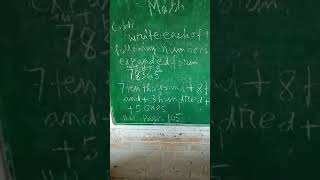 Math
write each of
following numbers
expanded form
78365
7 ten thousand + 8 t
and + 3 hundred +
+ 5 ones
page 105